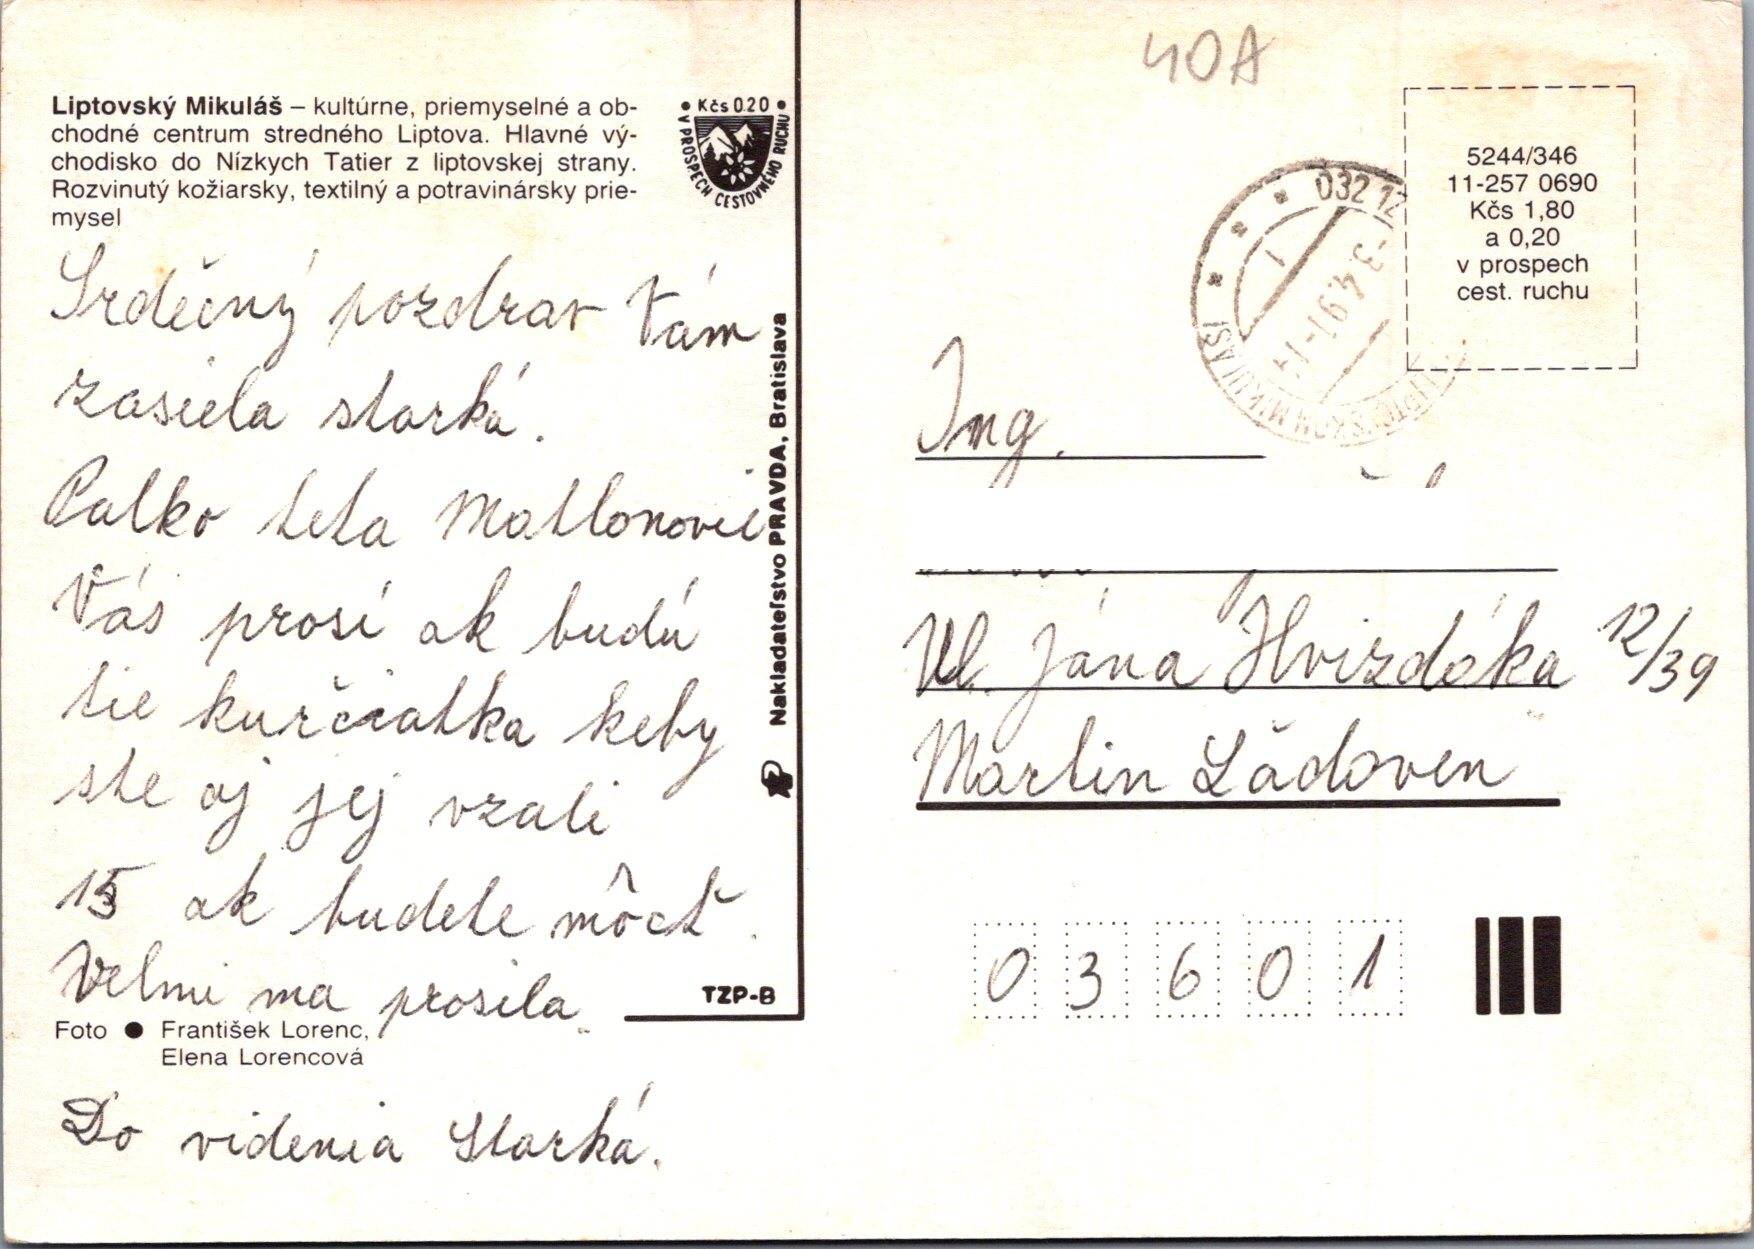 40A
Liptovský Mikuláš – kultúrne, priemyselné a ob-
chodné centrum stredného Liptova. Hlavné vý-
chodisko do Nízkych Tatier z liptovskej strany.
Rozvinutý kožiarsky, textilný a potravinársky prie-
mysel
• Kčs 0.20 •
V PROSPECH CESTOVNÉHO RUCHU
Srdečný pozdrav Vám
zasiela starká.
Palko teta Matlonovie
Vás prosí ak budú
tie kurčiatka keby
ste aj jej vzali
15 ak budete môcť.
Velmi ma prosila.
Foto ● František Lorenc,
Elena Lorencová
Do videnia Starká.
Nakladateľstvo PRAVDA, Bratislava
TZP-B
032 12
-3.4.91-
5244/346
11-257 0690
Kčs 1,80
a 0,20
v prospech
cest. ruchu
Ing.
Ul. Jána Hvizdáka 12/39
Martin Ľadoven
03601